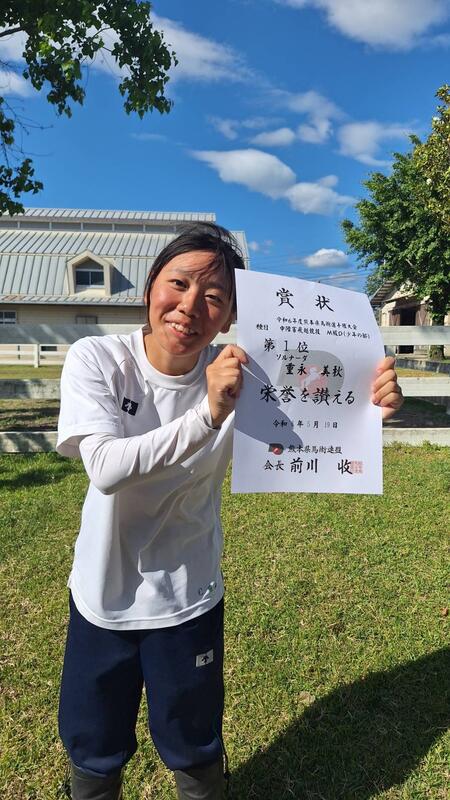 賞状
令和6年度熊本県馬術選手権大会
種目 中障害飛越競技 M級D(少年の部)
第1位
ソルナーダ
重永 美秋
栄誉を讃える
令和6年5月19日
熊本県馬術連盟
会長 前川 收